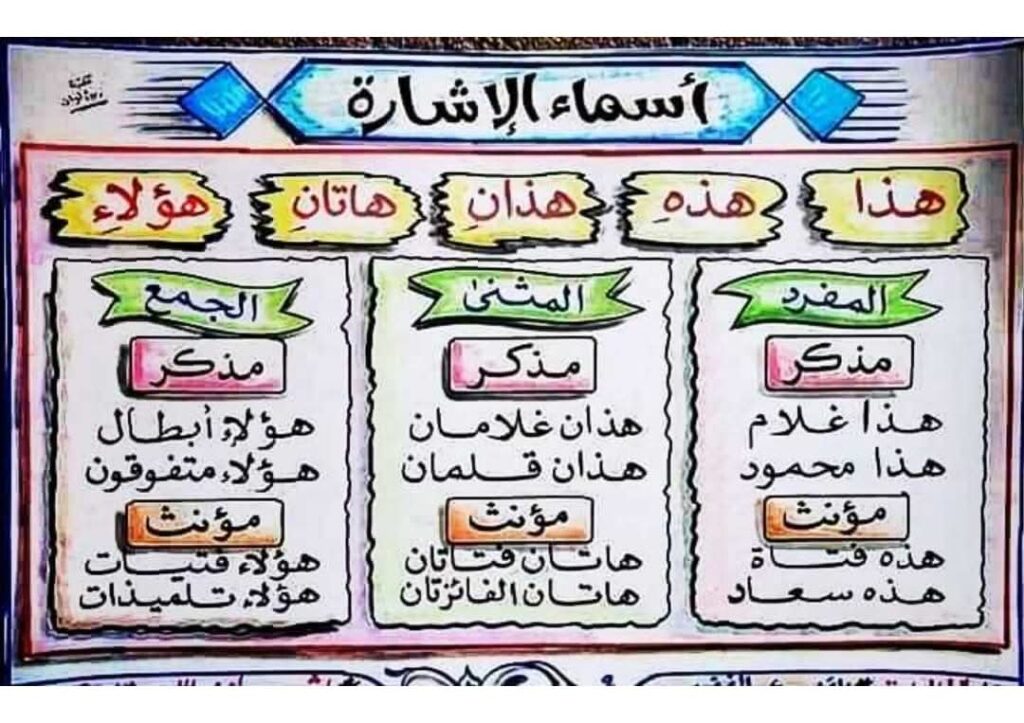 أسماء الإشارة
هذا هذهِ هذانِ هاتانِ هؤلاءِ
المفرد
مذكر
هذا غلام
هذا محمود
مؤنث
هذه فتاة
هذه سعاد
المثنىٰ
مذكر
هذان غلامان
هذان قلمان
مؤنث
هاتان فتاتان
هاتان الفائزتان
الجمع
مذكر
هؤلاء أبطال
هؤلاء متفوقون
مؤنث
هؤلاء فتيات
هؤلاء تلميذات